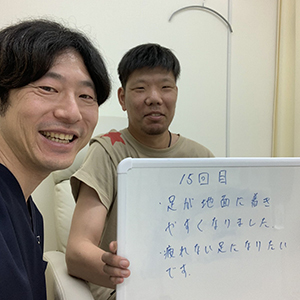 15回目
・足が地面に着き
やすくなりました
・疲れない足になりたい
です.